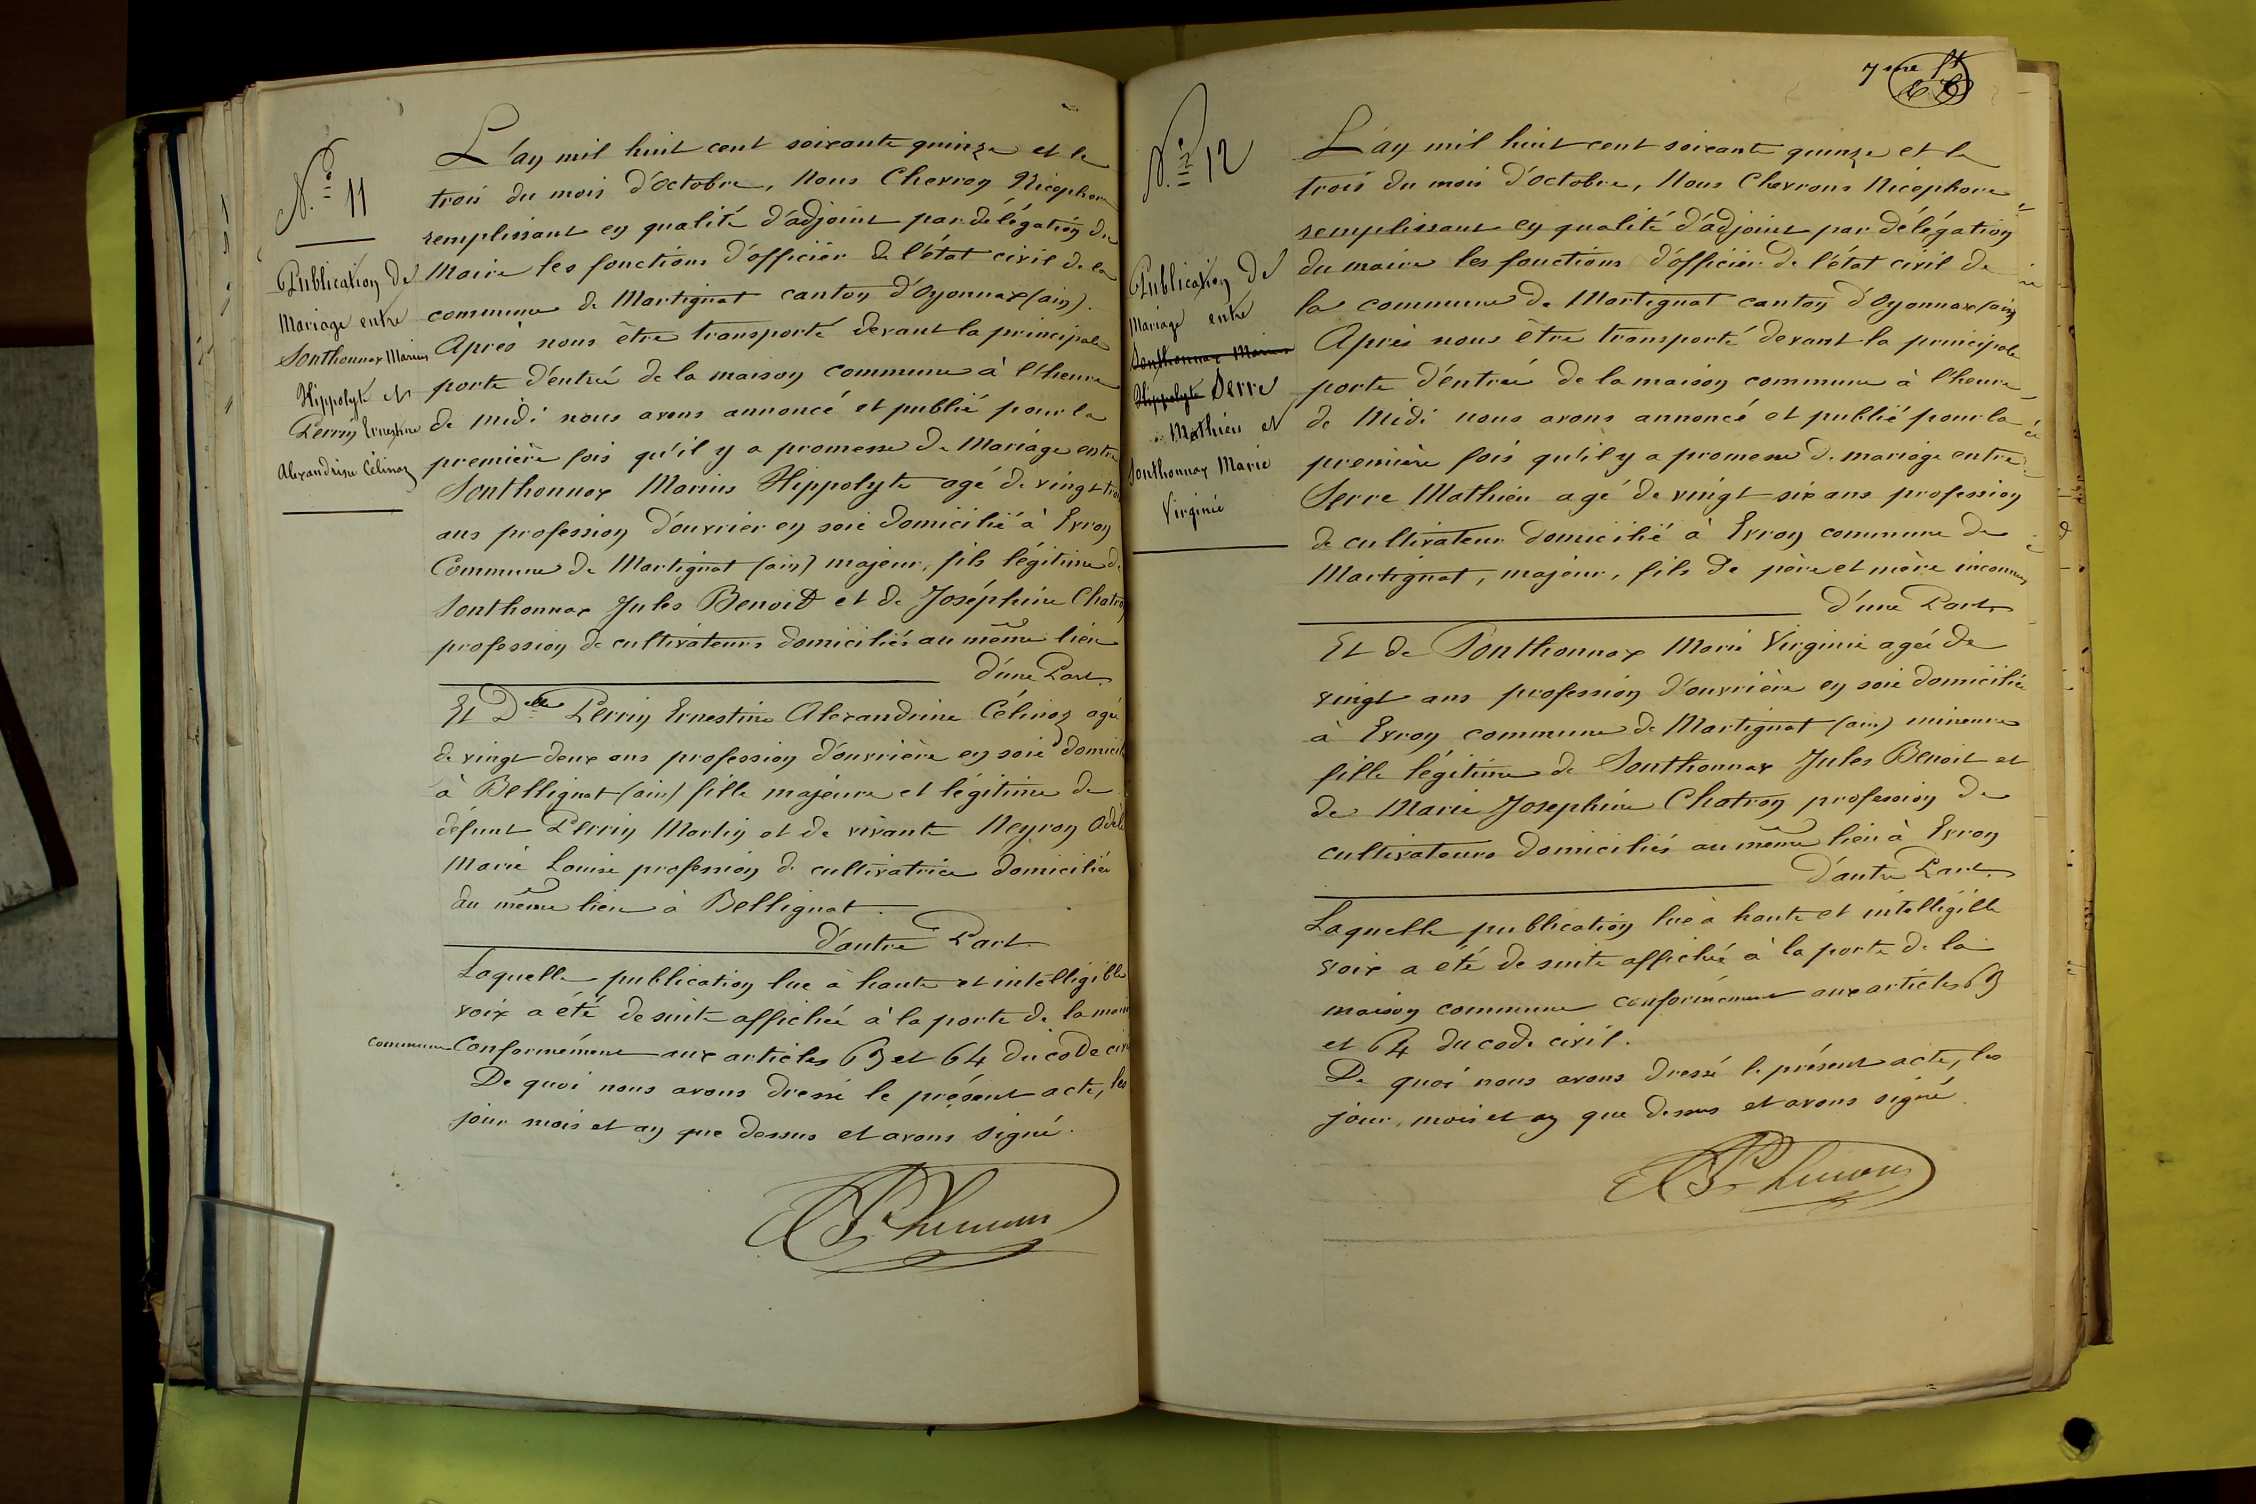 N.º 11
Publication de
Mariage entre
Sonthonnax Marius
Hippolyte et
Perrin Ernestine
Alexandrine Célinaz
L'an mil huit cent soixante quinze et le
trois du mois d'octobre, Nous Chevron Nicéphore
remplissant en qualité d'adjoint par délégation du
Maire les fonctions d'officier de l'état civil de la
commune de Martignat canton d'Oyonnax (ain).
Après nous être transporté devant la principale
porte d'entrée de la maison commune à l'heure
de midi nous avons annoncé et publié pour la
première fois qu'il y a promesse de Mariage entre
Sonthonnax Marius Hippolyte agé de vingt trois
ans profession d'ouvrier en soie domicilié à Evron
Commune de Martignat (ain) majeur, fils légitime de
Sonthonnax Jules Benoit et de Joséphine Chatron
profession de cultivateurs domiciliés au même lieu
d'une Part.
Et Delle Perrin Ernestine Alexandrine Célinaz agée
de vingt deux ans profession d'ouvrière en soie domicil
à Bellignat (ain) fille majeure et légitime de
défunt Perrin Martin et de vivante Neyron Adèle
Marie Louise profession de cultivatrice domiciliée
au même lieu à Bellignat.
d'autre Part.
Laquelle publication lue à haute et intelligible
voix a été de suite affichée à la porte de la maison
commune Conformément aux articles 63 et 64 du code civil
De quoi nous avons dressé le présent acte, les
jour mois et an que dessus et avons signé.
7me ft
N.º 12
Publication de
Mariage entre
Sonthonnax Marius
Hippolyte Serre
Mathieu et
Sonthonnax Marie
Virginie
L'an mil huit cent soixante quinze et le
trois du mois d'octobre, Nous Chevrons Nicéphore
remplissant en qualité d'adjoint par délégation
du maire les fonctions d'officier de l'état civil de
la commune de Martignat canton d'Oyonnax (ain)
Après nous être transporté devant la principale
porte d'entrée de la maison commune à l'heure
de Midi nous avons annoncé et publié pour la
première fois qu'il y a promesse de mariage entre
Serre Mathieu agé de vingt six ans profession
de cultivateur domicilié à Evron commune de
Martignat, majeur, fils de père et mère inconnus
d'une Part.
Et de Sonthonnax Marie Virginie agée de
vingt ans profession d'ouvrière en soie domiciliée
à Evron commune de Martignat (ain) mineure
fille légitime de Sonthonnax Jules Benoit et
de Marie Josephine Chatron profession de
cultivateurs domiciliés au même lieu à Evron
d'autre Part.
Laquelle publication lue à haute et intelligible
voix a été de suite affichée à la porte de la
maison commune conformément aux articles 63
et 64 du code civil.
De quoi nous avons dressé le présent acte, les
jour, mois et an que dessus et avons signé.